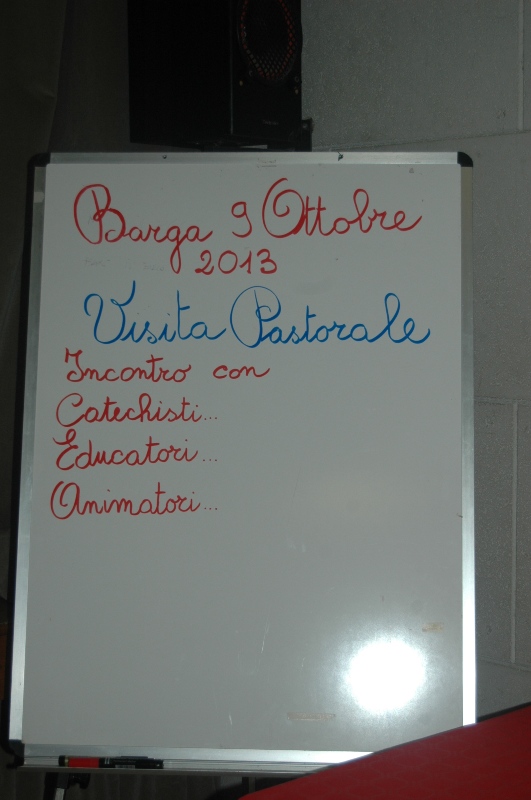 Barga 9 Ottobre
2013
Visita Pastorale
Incontro con
Catechisti...
Educatori...
Animatori...